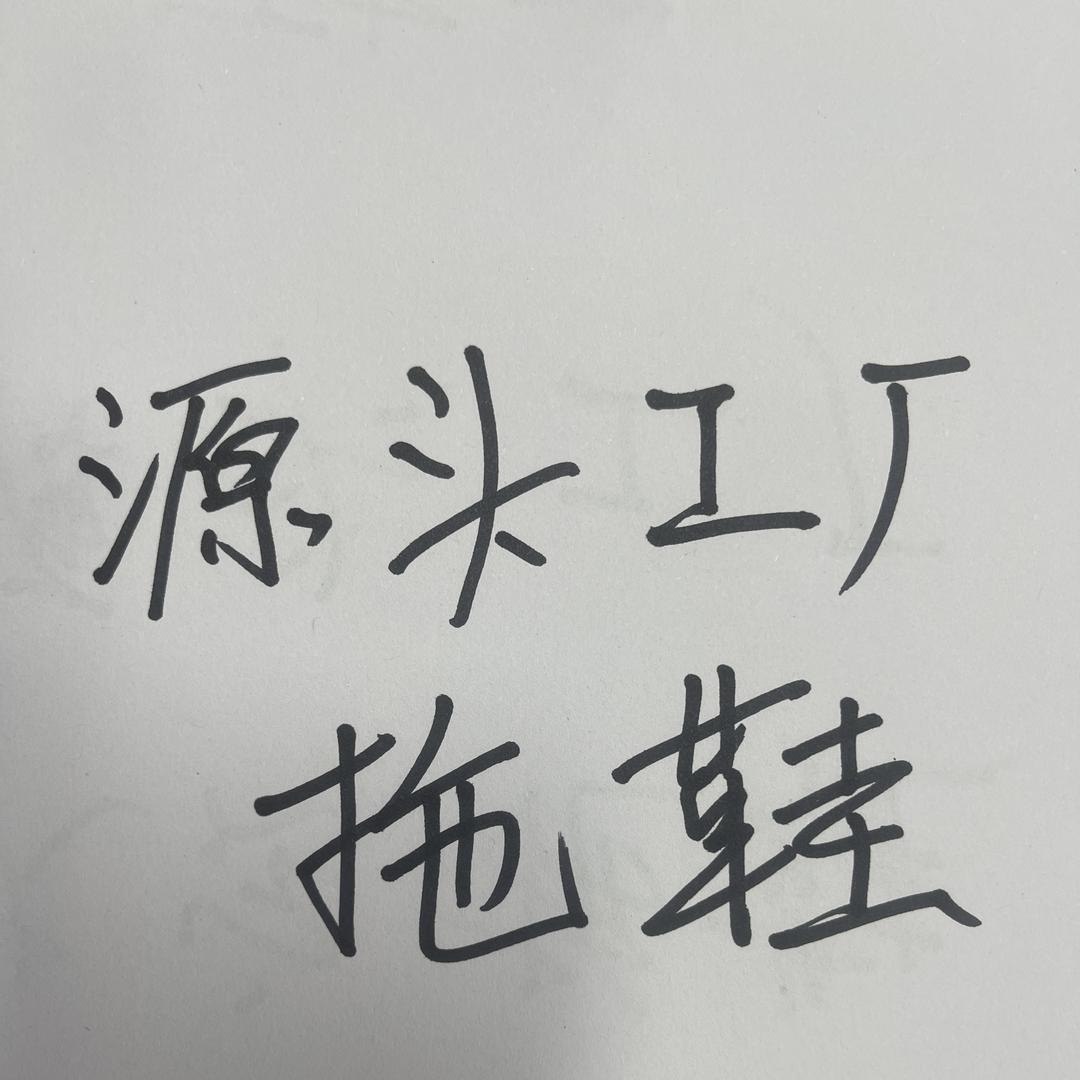 源头工厂
拖鞋